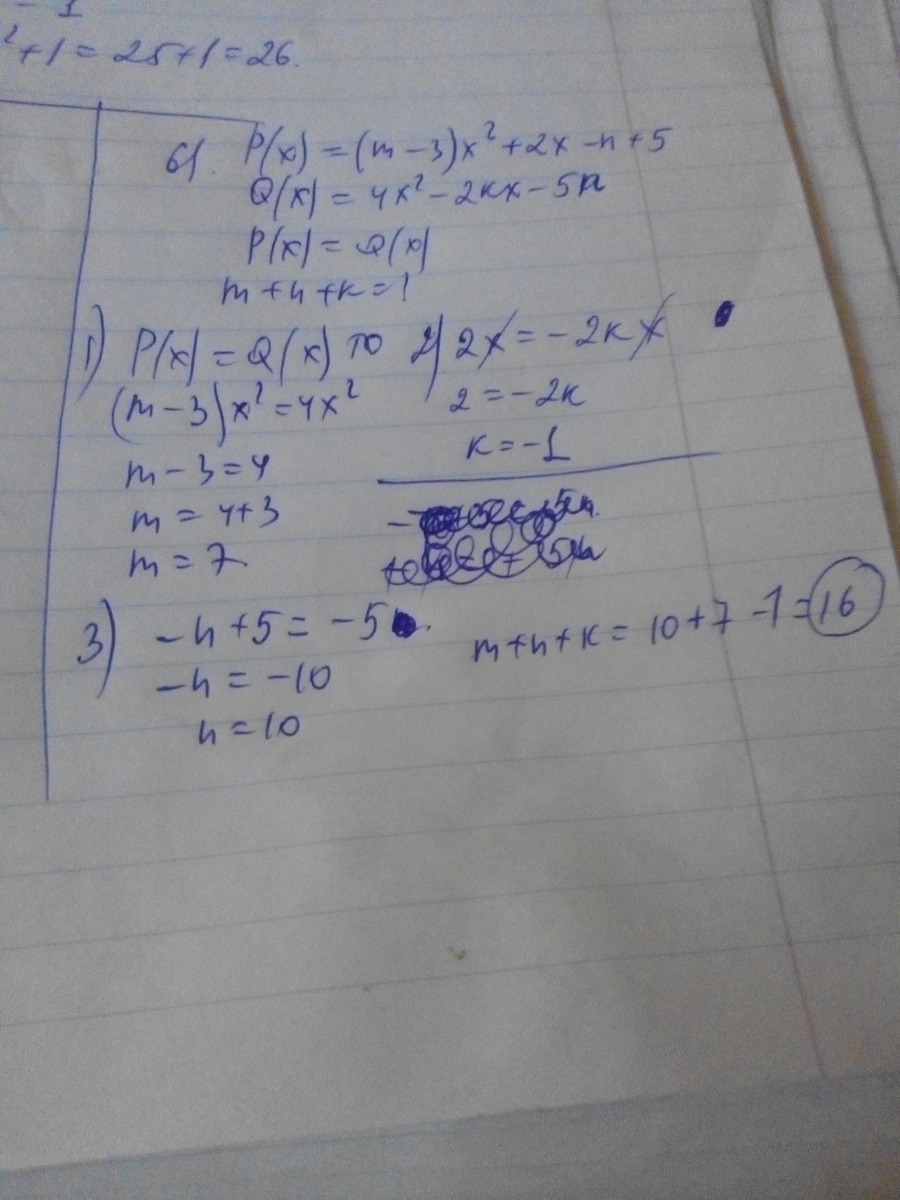 - 1
²+1=25+1=26.
6). P(x)=(m-3)x²+2x-n+5
Q(x)=4x²-2кx-5
P(x)=Q(x)
m+n+к=!
1) P(x)=Q(x) то
(m-3)x²=4x²
m-3=4
m=4+3
m=7
2) 2x=-2кx
2=-2к
к=-1
3) -n+5=-5
-n=-10
n=10
m+n+к=10+7-1=16